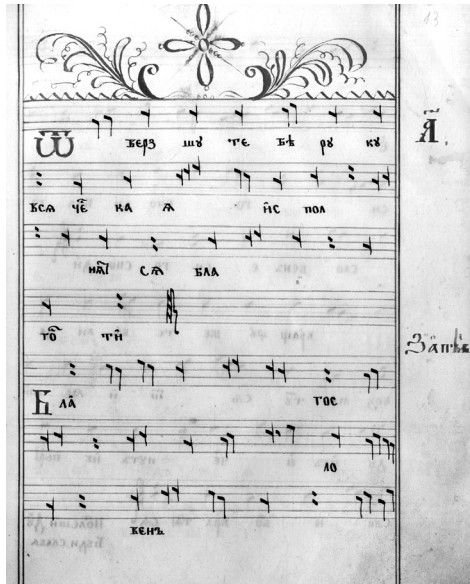 13
Ѿ верз шу те бѣ ру ку
а҃.
всѧ че ка ѧ ис пол
нѧ сѧ бла
го ти
Запѣв
Б ла гос
ло
венъ